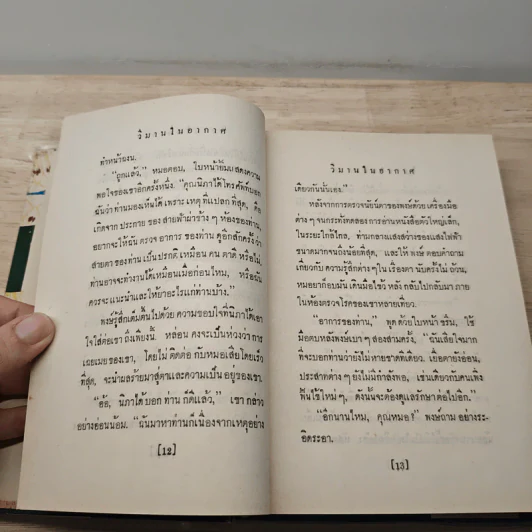 วิมานในอากาศ
ทำหน้าฉงน.
"ถูกแล้ว," หมอตอบ, ใบหน้ายิ้มแสดงความ
พอใจของเขาอีกครั้งหนึ่ง. "คุณนิภาได้โทรศัพท์บอก
ฉันว่า ท่านมองเห็นได้ เพราะ เหตุ ที่แปลก ที่สุด, คือ
เกิดจาก ประกาย ของ สายฟ้าผ่าข้าง ๆ ห้องของท่าน,
อยากจะให้ฉัน ตรวจ อาการ ของท่าน ดูอีกสักครั้ง ว่า
สายตา ของ ท่าน เป็น ปรกติ เหมือน คน ตาดี หรือไม่,
ท่านอาจจะทำงานได้เหมือนเมื่อก่อนไหม, หรือฉัน
ควรจะ แนะนำและให้ยาอะไรแก่ท่านบ้าง."
พงษ์รู้สึกเต็มตื้นไปด้วย ความขอบใจที่นิภาได้เอา
ใจใส่ต่อเขา ถึงเพียงนี้. หล่อน คงจะเป็นห่วงว่า การ
เฉยเมย ของเขา, โดยไม่ ติดต่อ กับหมอเสียโดยเร็ว
ที่สุด, จะนำผลร้ายมาสู่ตาและความเป็น อยู่ของเขา.
"อ้อ, นิภาได้ บอก ท่าน ก็ดีแล้ว," เขา กล่าว
อย่างอ่อนน้อม. "ฉันมาหาท่านก็เนื่องจากเหตุอย่าง
[12]
วิมานในอากาศ
เดียวกันนั่นเอง."
หลังจากการตรวจนัยน์ตาของพงษ์ด้วย เครื่องมือ
ต่าง ๆ จนกระทั่งทดลอง การ อ่านหนังสือตัวใหญ่เล็ก,
ในระยะใกล้ไกล, ท่ามกลางแสงสว่างของแสงไฟฟ้า
ขนาดมากจนถึงน้อยที่สุด, และให้ พงษ์ ตอบคำถาม
เกี่ยวกับ ความรู้สึกต่าง ๆ ใน เรื่องตา นับครั้งไม่ ถ้วน,
หมอยาก็อบนัน เดินมือไขว้ หลัง กลับ ไปกลับมา ภาย
ในห้องตรวจโรคของเขาหลายเที่ยว.
"อาการของท่าน," พูด ด้วย ใบหน้า ขรึม, ใช้
มือตบหลังพงษ์เบา ๆ สองสามครั้ง, "ฉันเสียใจมาก
ที่จะบอกท่านว่ายังไม่หายขาดทีเดียว. เยื่อตายังอ่อน,
ประสาทต่าง ๆ ยังไม่มีกำลังพอ, เช่นเดียวกับคนเพิ่ง
ฟื้นไข้ใหม่ ๆ, ดังนั้นจะต้องดูแลรักษา ต่อไปอีก."
"อีกนานไหม, คุณหมอ?" พงษ์ถาม อย่างระ-
อิดระอา.
[13]